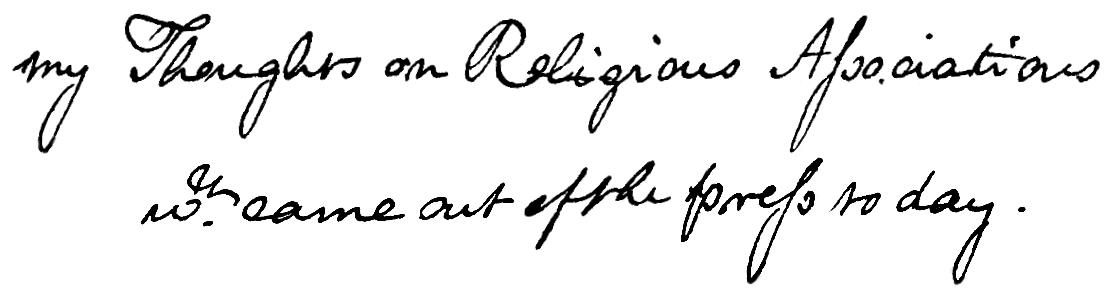 my Thoughts on Religious Aſsociations
wͭ. came out of the preſs to day.